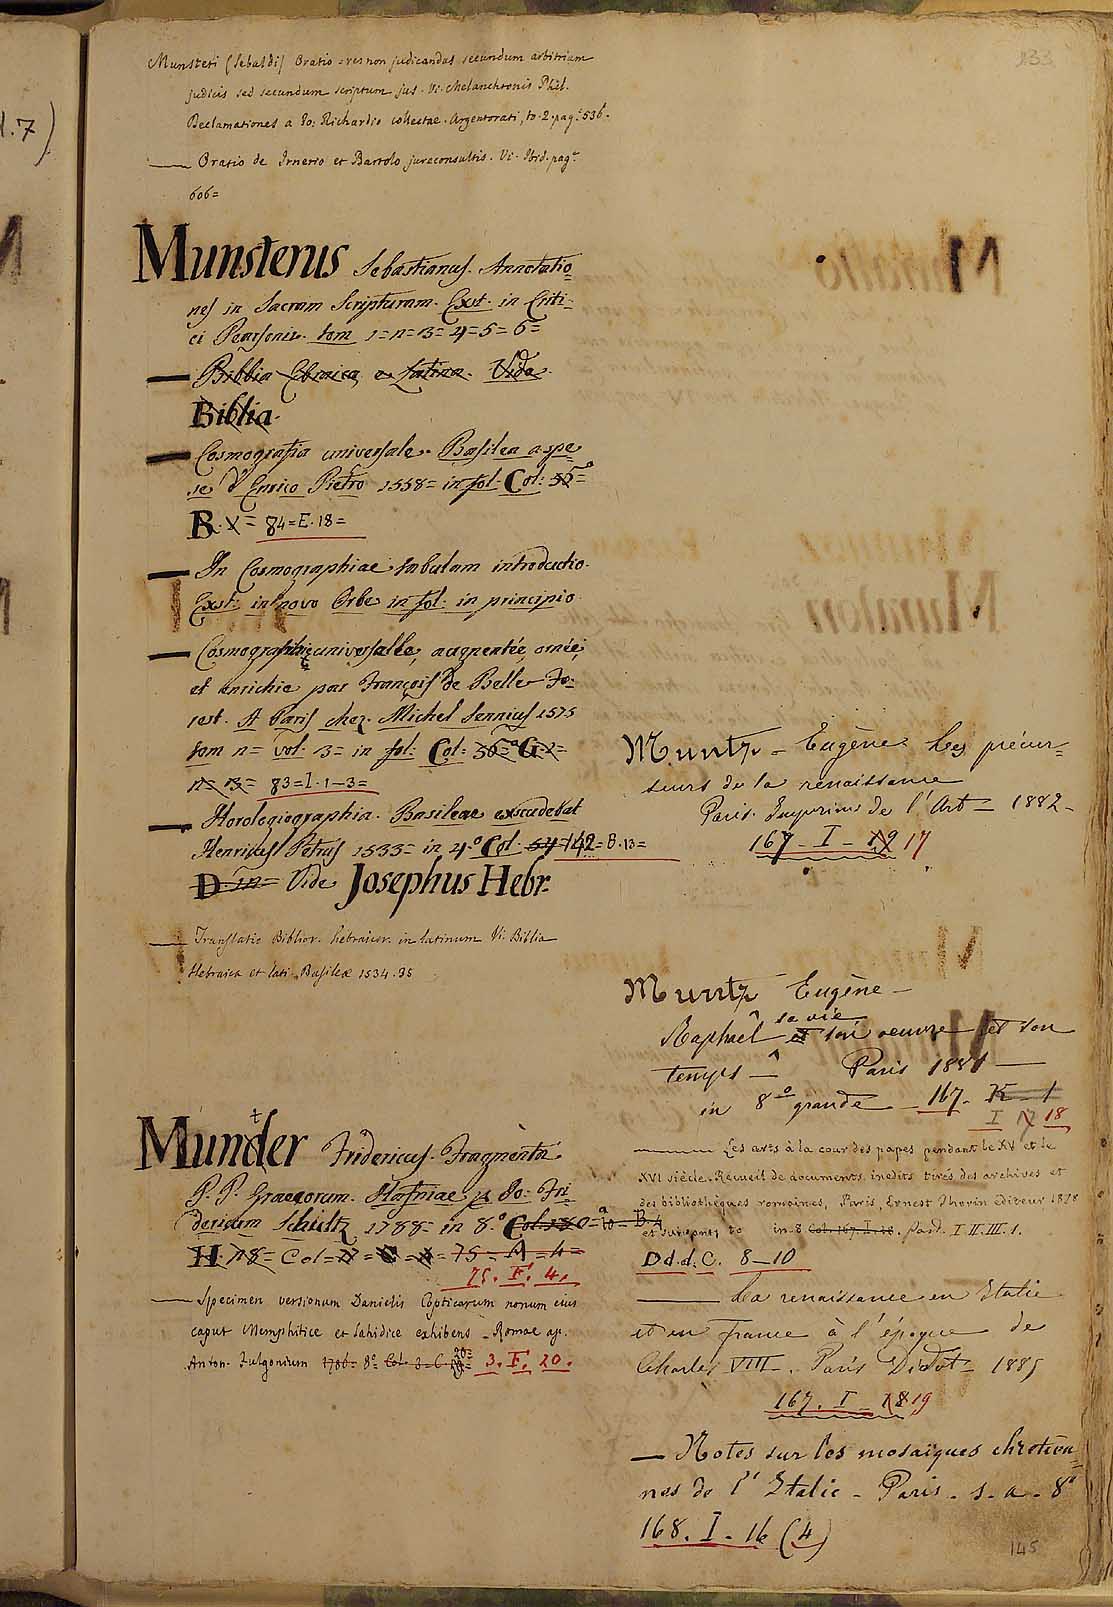 133
l. 7)
Munsteri (Sebaldi) Oratio = res non judicandas secundum arbitrium
judicis sed secundum scriptum jus. Vi. Melanchtonis Phil.
Declamationes a Jo: Richardio collectae. Argentorati, to. 2. pag.ª 536.
— Oratio de Irnerio et Bartolo jureconsultis. Vi. Ibid. pag.ª
606=
Munsterus Sebastianus. Annotatio=
nes in Sacram Scripturam. Exst. in Criti=
ci Pearsonii. tom 1=n=3=4=5=6=
— Bibbia Ebraica, e Latina. Vide.
Biblia.
— Cosmografia universale. Basilea a spe
se d'Enrico Pietro 1558= in fol. Col: 55=ª
B. X= 84=E.18=
— In Cosmographiae tabulam introductio.
Exst: in novo Orbe in fol: in principio.
— Cosmographie universelle, augmentée, ornée,
et enrichie par François de Belle-Fo:
rest. A Paris chez. Michel Sonnius 1575
tom n= vol: 3= in fol: Col: 50=ª G.2=
n= 3= 83=I.1-3=
— Horologiographia. Basileae excudebat
Henricus Petrus 1533= in 4.º Col. 54=142=B.13=
D. in= Vide Josephus Hebr.
— Translatio Biblior. hebraicor. in latinum Vi. Biblia
Hebraica et lati. Basileæ 1534.35
Munder Fridericus. Fragmenta
P. P. Graecorum. Hafniae p. Jo: Fri=
dericum Schultz 1788= in 8.º Col. 180=
H 118= Col= = 75=A=4=
75. F. 4.
— Specimen versionum Danielis Copticarum nonum eius
caput Memphitice et Sahidice exhibens – Romae ap.
Anton. Fulgonium 1786= 8º Col. 3. C 20= 3. F. 20.
Muntz – Eugène. Les précur=
seurs de la renaissance
Paris. Imprimé de l'Art – 1882 –
167 – I – 19 17
Muntz Eugène –
Raphaël sa vie et son oeuvre et son
temps – Paris 1881 –
in 8º grande – 167. K – 1
I 17 18
— Les arts à la cour des papes pendant le XV et le
XVI siècle. Récueil de documents inedits tirés des archives et
des bibliothèques romaines, Paris, Ernest Thorin editeur 1878
et suivantes, to in 8 Col. 167. I. 18. fasd. I II. III. 1.
D d. d. C. 8–10
— La renaissance en Italie
et en france à l'époque de
Charles VIII –. Paris Didot – 1885
167. I – 18 19
— Notes sur les mosaïques chrètien=
nes de l'Italie – Paris – s. a. 8º
168. I – 16 (4)
145